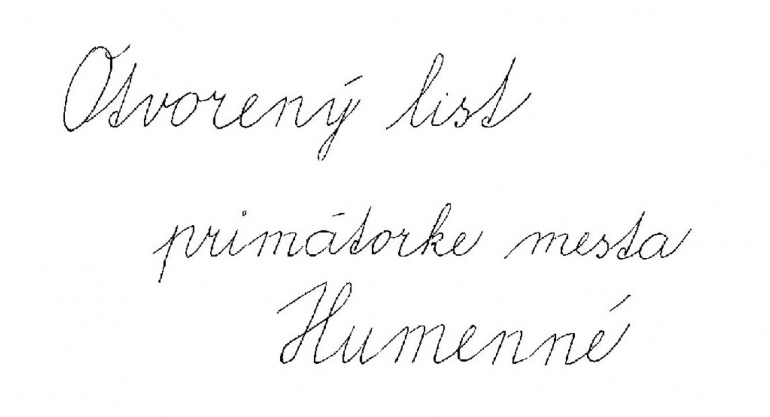 Otvorený list
primátorke mesta
Humenné